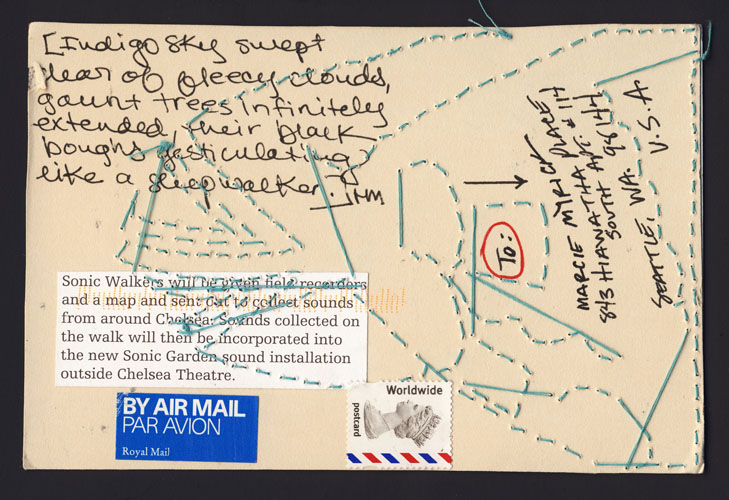 [Indigo sky swept
clear of fleecy clouds,
gaunt trees infinitely
extended, their black
boughs gesticulating
like a sleepwalker.]
HM
To:
MARCIE MYRICK
843 HIAWATHA PLACE
SOUTH APT. # 114
SEATTLE, WA. 98144
U.S.A
Sonic Walkers will be given field recorders
and a map and sent out to collect sounds
from around Chelsea. Sounds collected on
the walk will then be incorporated into
the new Sonic Garden sound installation
outside Chelsea Theatre.
BY AIR MAIL
PAR AVION
Royal Mail
Worldwide
postcard